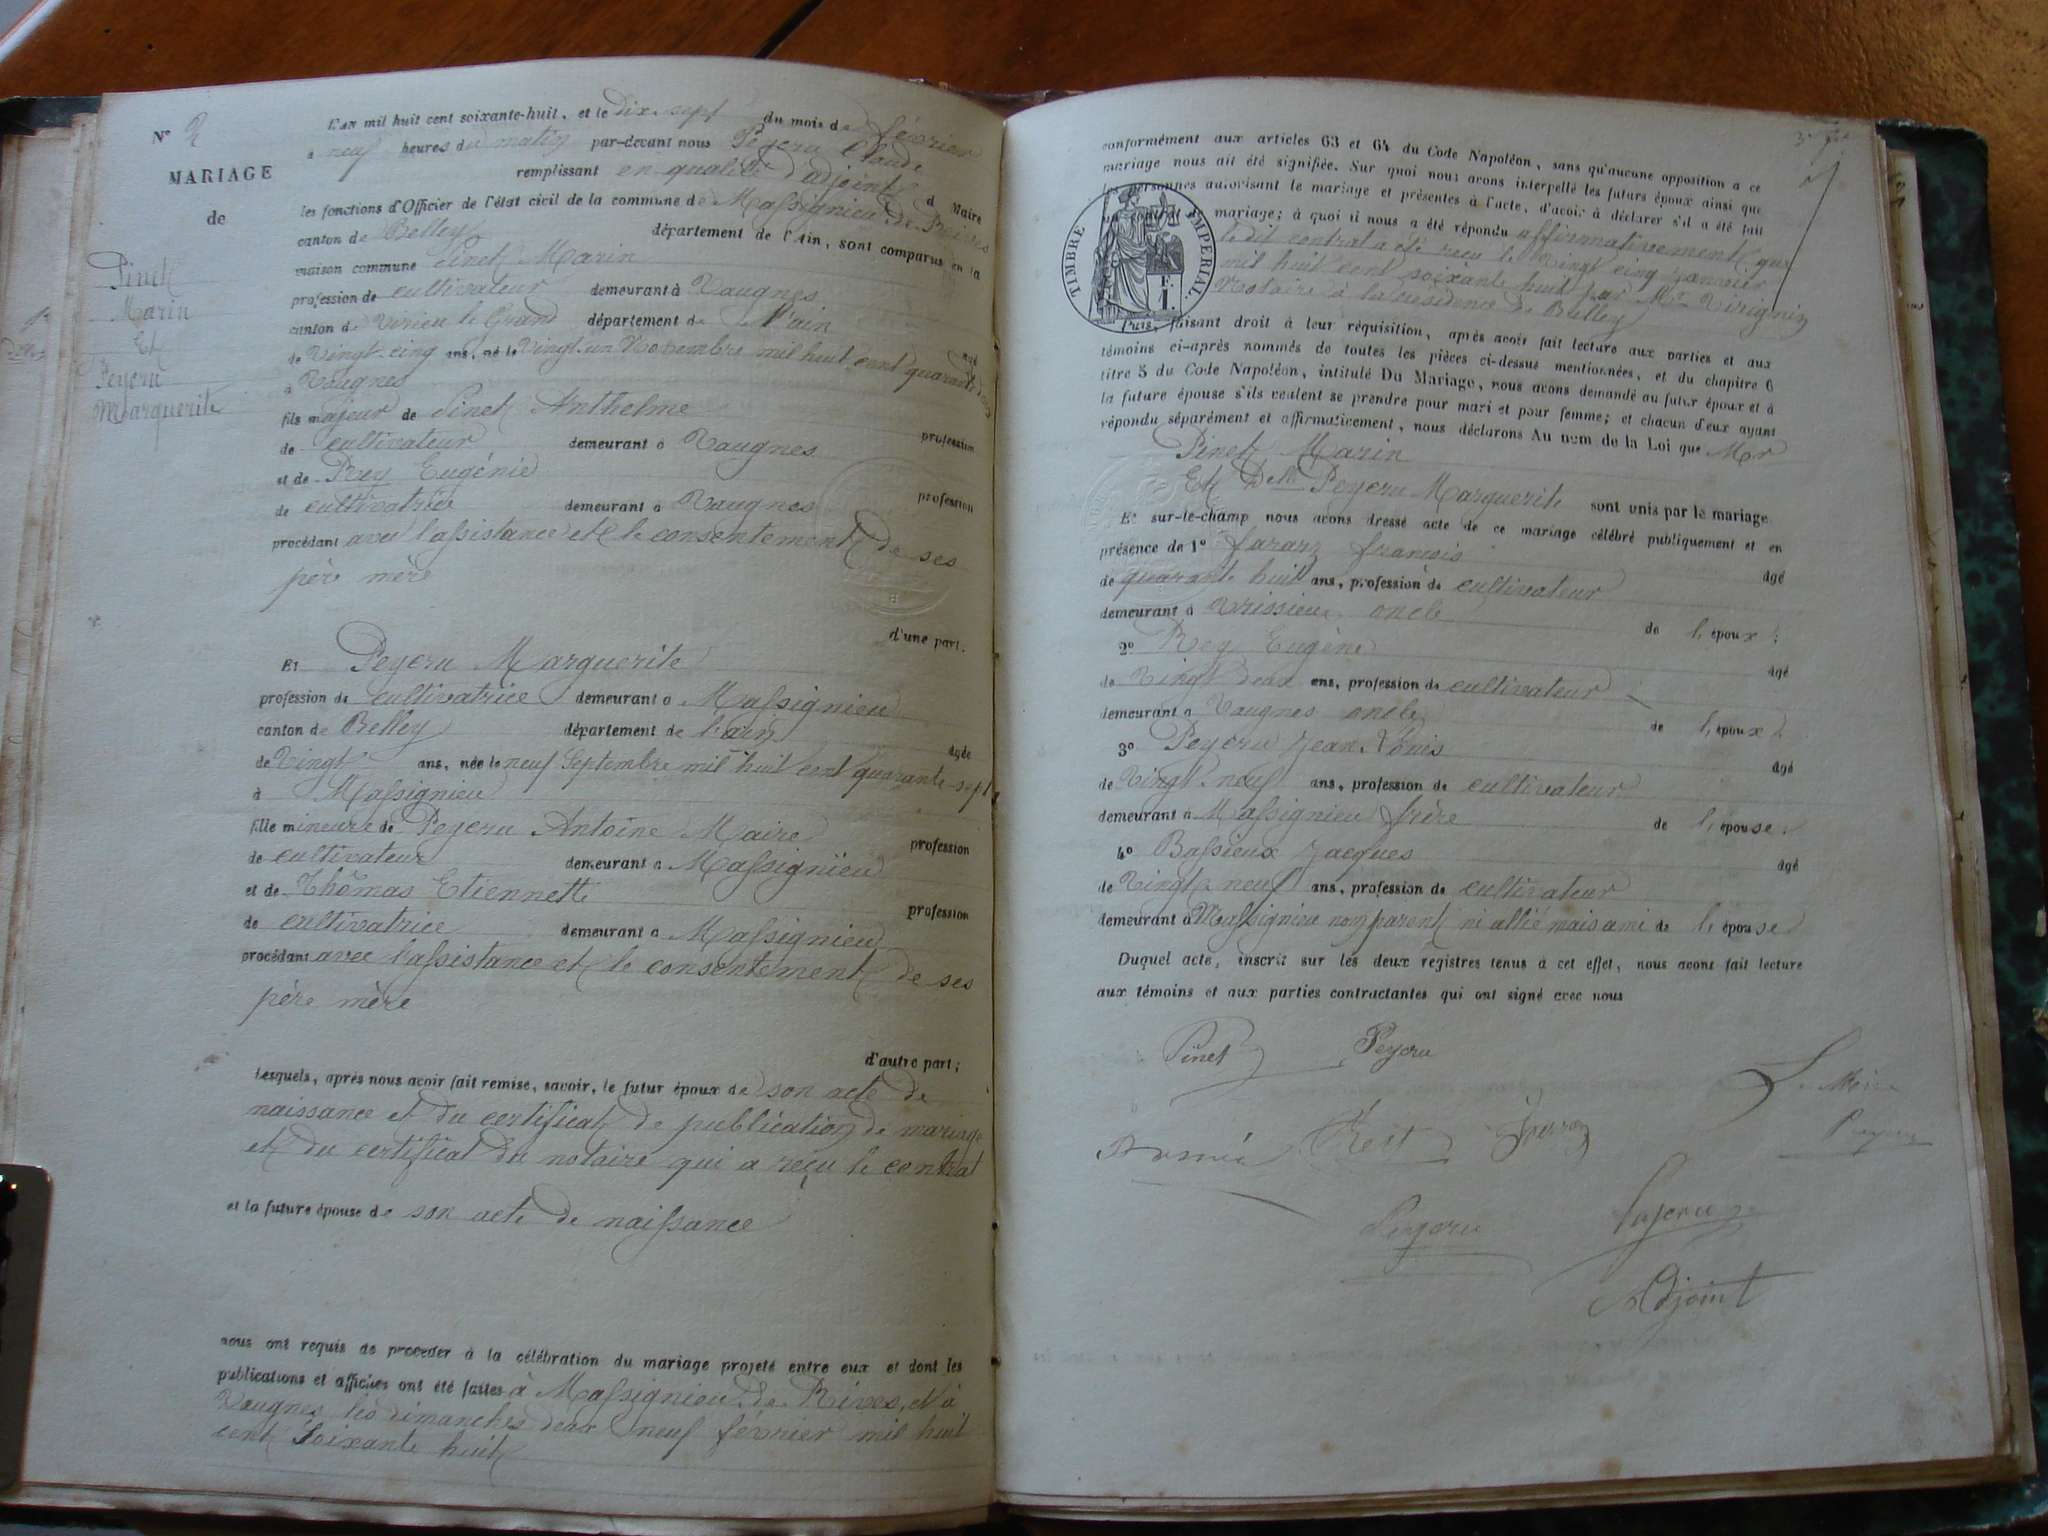 N° 2
MARIAGE
de
Pinet
Marin
Et
Peyeru
Marguerite
L'AN mil huit cent soixante-huit, et le dix sept du mois de février
à neuf heures du matin par-devant nous Peyeru Claude
remplissant en qualité d'adjoint d Maire
les fonctions d'Officier de l'état civil de la commune de Massignieu de Rives
canton de Belley département de l'Ain, sont comparus en la
maison commune Pinet Marin
profession de cultivateur demeurant à Vaugnes
canton de Virieu le Grand département de l'ain
âgé
de Vingt-cinq ans, né le Vingt-un Novembre mil huit cent quarante deux
à Vaugnes
fils majeur de Pinet Anthelme
profession
de cultivateur demeurant à Vaugnes
et de Rey Eugénie
profession
de cultivatrice demeurant à Vaugnes
procédant avec l'assistance et le consentement de ses
père mère
d'une part.
Et Peyeru Marguerite
profession de cultivatrice demeurant à Massignieu
canton de Belley département de l'ain
âgée
de Vingt ans, née le neuf Septembre mil huit cent quarante-sept
à Massignieu
fille mineure de Peyeru Antoine Maire
profession
de cultivateur demeurant à Massignieu
et de Thomas Etiennette
profession
de cultivatrice demeurant à Massignieu
procédant avec l'assistance et le consentement de ses
père mère
d'autre part;
Lesquels, après nous avoir fait remise, savoir, le futur époux de son acte de
naissance et du certificat de publication de mariage
et du certificat du notaire qui a reçu le contrat
et la future épouse de son acte de naissance
nous ont requis de procéder à la célébration du mariage projeté entre eux et dont les
publications et affiches ont été faites à Massignieu de Rives, et à
Vaugnes les dimanches deux neuf février mil huit
cent soixante huit
conformément aux articles 63 et 64 du Code Napoléon, sans qu'aucune opposition a ce
mariage nous ait été signifiée. Sur quoi nous avons interpellé les futurs époux ainsi que
les personnes autorisant le mariage et présentes à l'acte, d'avoir à déclarer s'il a été fait
mariage; à quoi il nous a été répondu affirmativement que
le dit contrat a été reçu le Vingt cinq Janvier
mil huit cent soixante huit par Mr Virignin
Notaire à la résidence de Belley
TIMBRE IMPERIAL.
Puis, faisant droit à leur réquisition, après avoir fait lecture aux parties et aux
témoins ci-après nommés de toutes les pièces ci-dessus mentionnées, et du chapitre 6
titre 5 du Code Napoléon, intitulé Du Mariage, nous avons demandé au futur époux et à
la future épouse s'ils veulent se prendre pour mari et pour femme; et chacun d'eux ayant
répondu séparément et affirmativement, nous déclarons Au nom de la Loi que Mr
Pinet Marin
Et Delle Peyeru Marguerite sont unis par le mariage
Et sur-le-champ nous avons dressé acte de ce mariage célébré publiquement et en
présence de 1° françois
âgé
de quarante huit ans, profession de cultivateur
demeurant à oncle de l'époux
2° Rey Eugène
âgé
de Vingt deux ans, profession de cultivateur
demeurant à Vaugnes oncle de l'époux
3° Peyeru Jean Louis
âgé
de Vingt-neuf ans, profession de cultivateur
demeurant à Massignieu frère de l'épouse
4° Bassieux Jacques
âgé
de Vingt-neuf ans, profession de cultivateur
demeurant à Massignieu non parent ni allié mais ami de l'épouse
Duquel acte, inscrit sur les deux registres tenus à cet effet, nous avons fait lecture
aux témoins et aux parties contractantes qui ont signé avec nous
Pinet Peyeru
Le Maire
Peyeru
Peyeru Peyeru
Adjoint